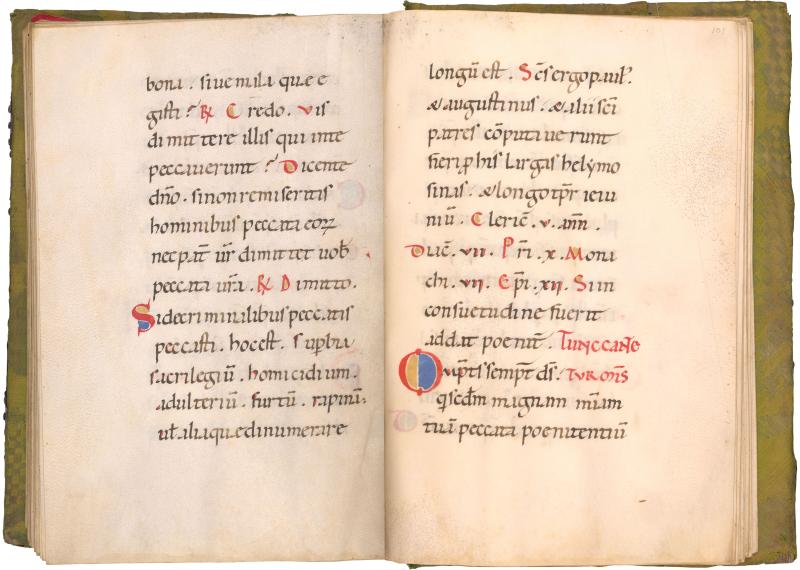 bona. siue mala quae e
gisti? ℟ Credo. Vis
dimittere illis qui inte
peccauerunt? Dicente
dño. si non remiseritis
hominibus peccata eoꝝ
nec pat̄ ur̄ dimittet uob̄
peccata ur̄a. ℟ Dimitto.
Si de criminalibus peccatis
peccasti. hoc est. Sup̱bia
sacrilegiū. homicidium.
adulteriū. furtū. rapinā.
ul̄ alia quae dinumerare
101
longū est. Sc̄s ergo paul᾽.
& augustinus. & alii sc̄i
patres cōputauerunt
fieri ꝓ his largas helymo
sinas. & longo tp̄r ieiu
niū. Cleric̄. v. ann̄.
Diac̄. vii. Pr̄i. x. Mona
chi. vii. Ep̄i. xii. Si in
consuetudine fuerit
addat poenit̄. Tunc cante
qsc̄dm magnam mīam
tuā peccata poenitentiū